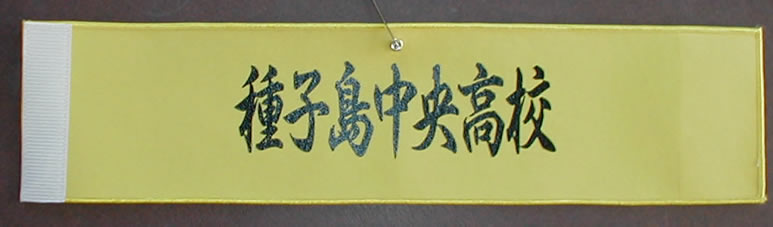 種子島中央高校